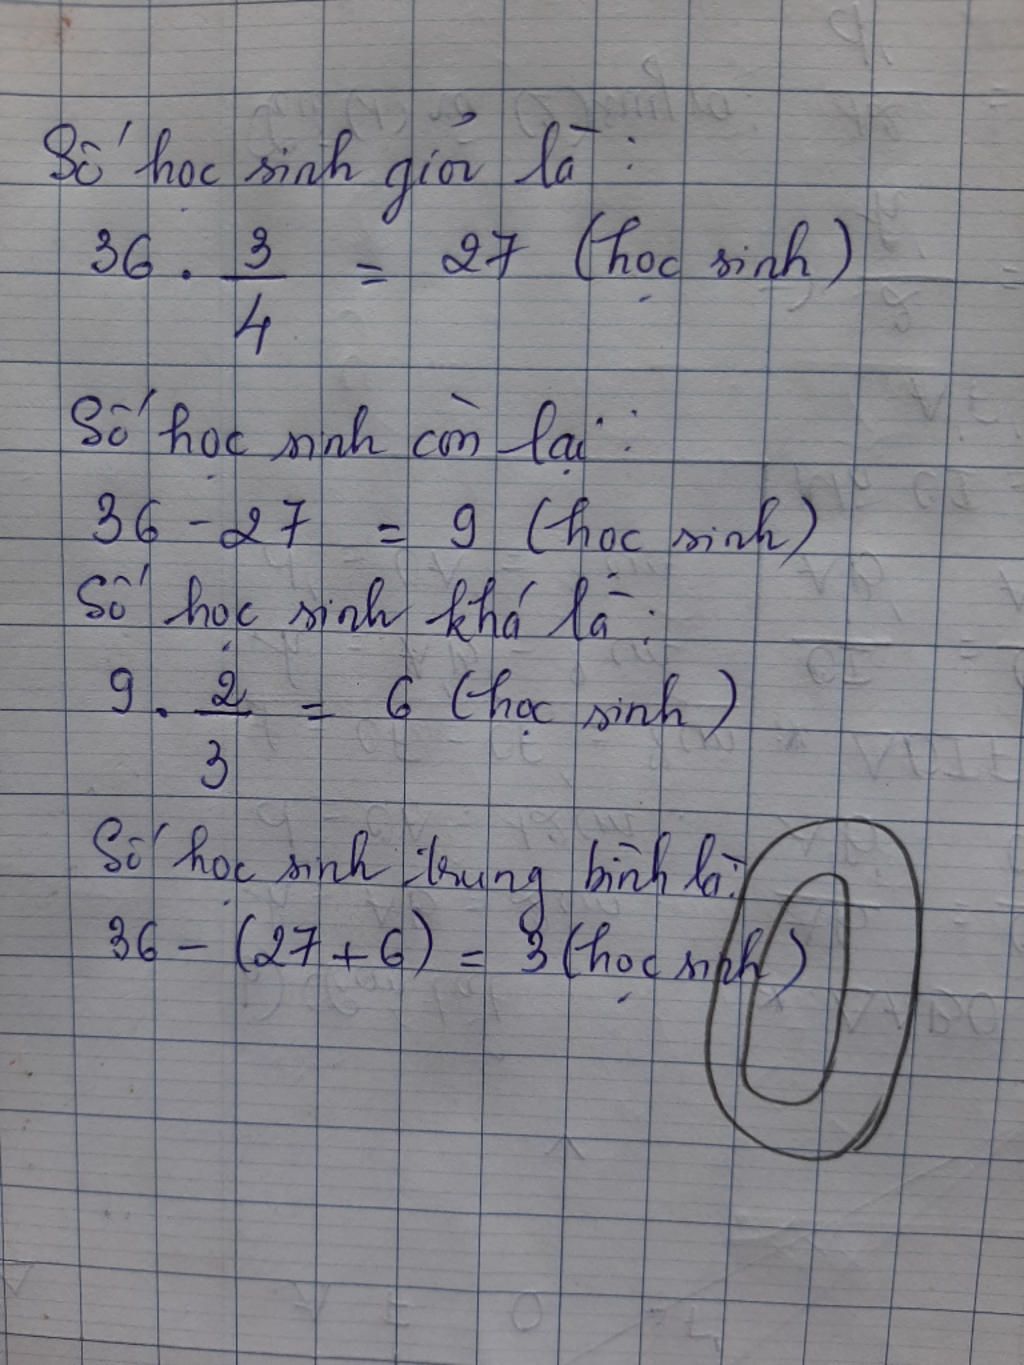 Số học sinh giỏi là:
36 . 3/4 = 27 (học sinh)
Số học sinh còn lại:
36 - 27 = 9 (học sinh)
Số học sinh khá là:
9 . 2/3 = 6 (học sinh)
Số học sinh trung bình là:
36 - (27 + 6) = 3 (học sinh)